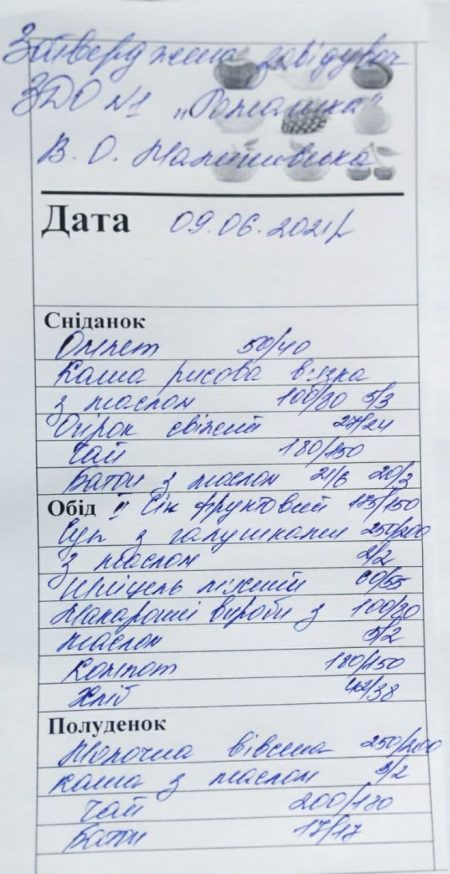 Затверджена завідувач
ЗДО №1 „Ромашка"
В. О.
Дата 09.06.2021р
Сніданок
Омлет 50/40
Каша рисова в'язка
з маслом 100/80 5/3
Огірок свіжий 27/24
Чай 180/150
Батон з маслом 21/6 20/3
Обід II Сік фруктовий 175/150
Суп з галушками 250/200
з маслом 2/2
Шніцель ніжний 60/55
Макаронні вироби з 100/80
маслом 5/2
Компот 180/150
Хліб 47/38
Полуденок
Молочна вівсяна 250/200
каша з маслом 2/2
Чай 200/180
Батон 17/17